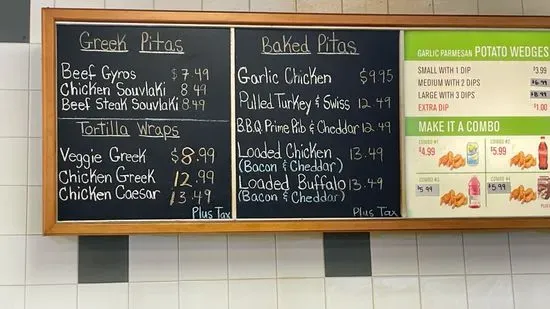 Greek Pitas
Beef Gyros $7.49
Chicken Souvlaki 8.49
Beef Steak Souvlaki 8.49
Tortilla Wraps
Veggie Greek $8.99
Chicken Greek 12.99
Chicken Caesar 13.49
Plus Tax
Baked Pitas
Garlic Chicken $9.95
Pulled Turkey & Swiss 12.49
B.B.Q. Prime Rib & Cheddar 12.49
Loaded Chicken 13.49
(Bacon & Cheddar)
Loaded Buffalo 13.49
(Bacon & Cheddar)
Plus Tax
GARLIC PARMESAN POTATO WEDGES
SMALL WITH 1 DIP $3.99
MEDIUM WITH 2 DIPS
LARGE WITH 3 DIPS
EXTRA DIP $1.00
MAKE IT A COMBO
COMBO #1
$4.99
COMBO #2
$5.99
COMBO #3
$5.99
COMBO #4
$5.99